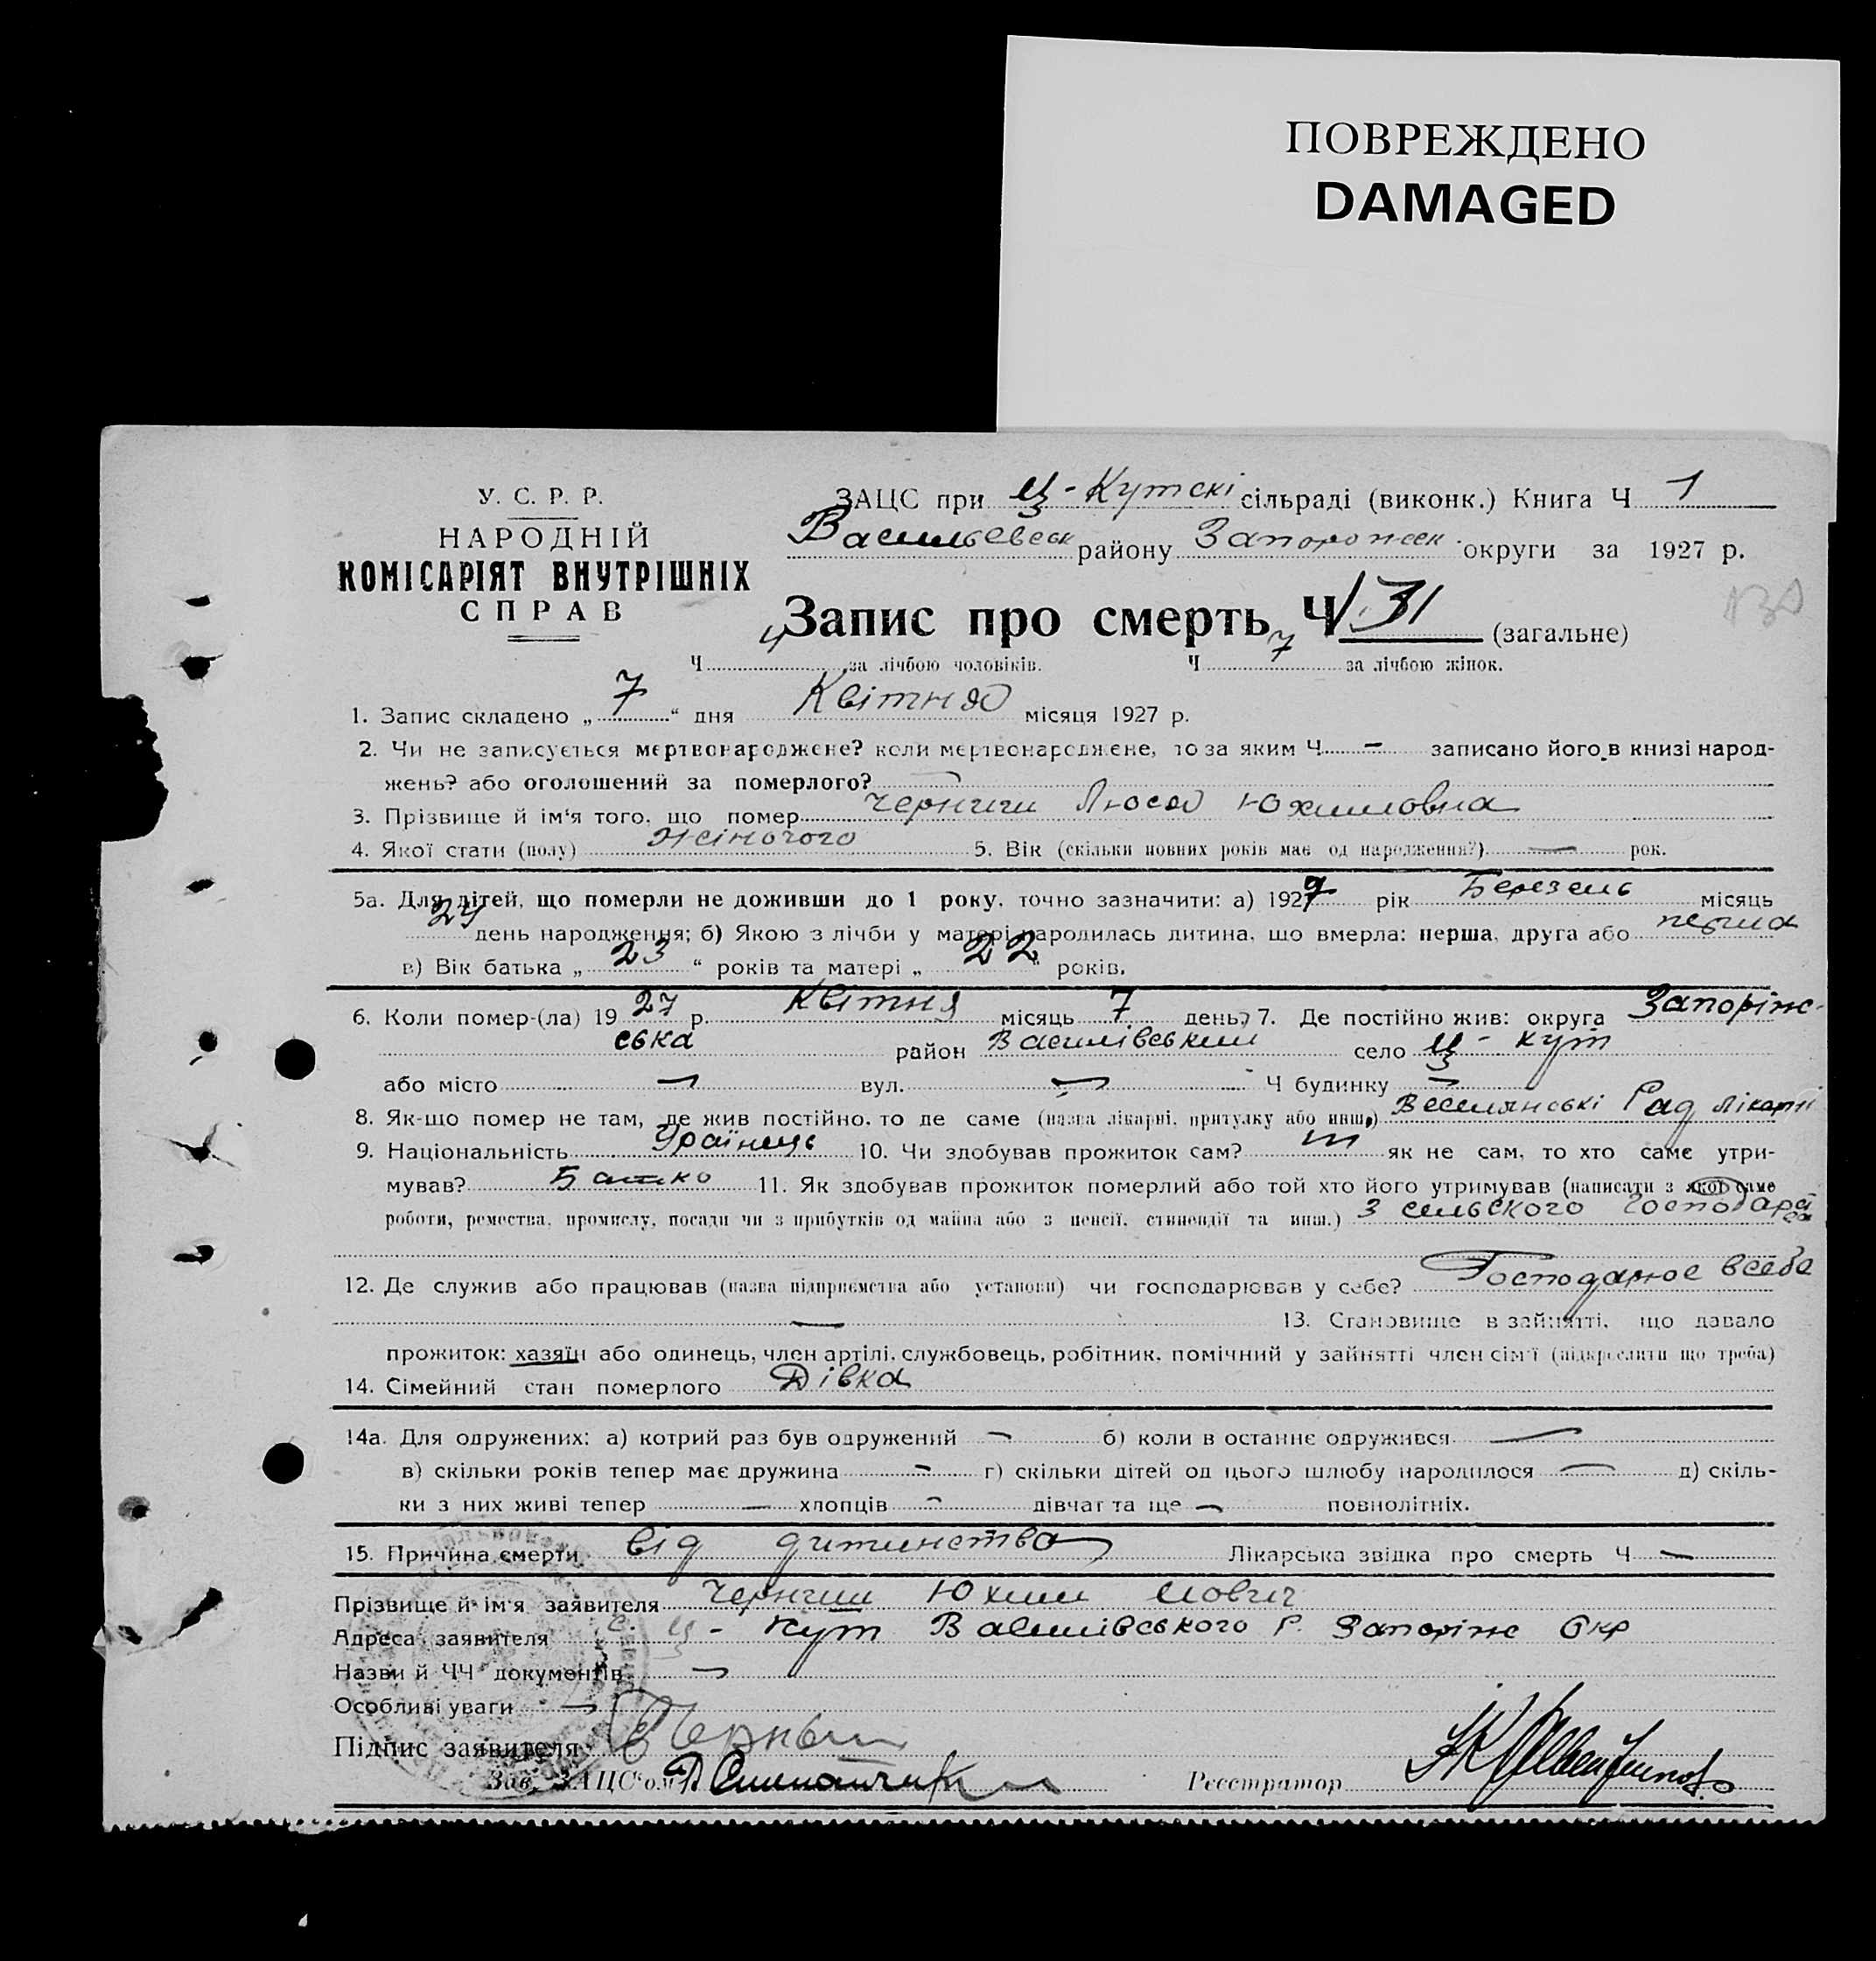 ПОВРЕЖДЕНО
DAMAGED
У. С. Р. Р.
НАРОДНІЙ
КОМІСАРІЯТ ВНУТРІШНІХ
СПРАВ
ЗАЦС при Ц-Кутскі сільраді (виконк.) Книга Ч 1
Васильевск району Запорожск. округи за 1927 р.
Запис про смерть Ч 31 (загальне)
Ч за лічбою чоловіків. Ч 7 за лічбою жінок.
1. Запис складено „ 7 “ дня Квітня місяця 1927 р.
2. Чи не записується мертвонароджене? коли мертвонароджене, то за яким Ч — записано його в книзі народ-
жень? або оголошений за померлого? —
3. Прізвище й ім'я того, що помер Люся Юхимовна
4. Якої стати (полу) Жіночого 5. Вік (скільки повних років має од народження?) — рок.
5а. Для дітей, що померли не доживши до 1 року, точно зазначити: а) 1927 рік Березень місяць
24 день народження; б) Якою з лічби у матері народилась дитина, що вмерла: перша, друга або перша
в) Вік батька „ 23 “ років та матері „ 22 “ років.
6. Коли помер-(ла) 1927 р. Квітня місяць 7 день; 7. Де постійно жив: округа Запоріж-
ська район Василівський село Ц-Кут
або місто — вул. — Ч будинку —
8. Як-що помер не там, де жив постійно, то де саме (назва лікарні, притулку або инш.) Рад лікарні
9. Національність Украінець 10. Чи здобував прожиток сам? ні як не сам, то хто саме утри-
мував? Батько 11. Як здобував прожиток померлий або той хто його утримував (написати з якої саме
роботи, ремества, промислу, посади чи з прибутків од майна або з пенсії, стипендії та инш.) З сельского господарства
12. Де служив або працював (назва підприємства або установи) чи господарював у себе? Господарює в себе
— 13. Становище в зайнятті, що давало
прожиток: хазяїн або одинець, член артілі, службовець, робітник, помічний у зайнятті член сім'ї (підкреслити що треба)
14. Сімейний стан померлого Дівка
14а. Для одружених: а) котрий раз був одружений — б) коли в останнє одружився —
в) скільки років тепер має дружина — г) скільки дітей од цього шлюбу народилося — д) скіль-
ки з них живі тепер — хлопців — дівчат та ще — повнолітніх.
15. Причина смерти Від дитинства Лікарська звідка про смерть Ч —
Прізвище й ім'я заявителя Юхим
Адреса заявителя с. Ц-Кут Василівського Р. Запоріж Окр
Назви й ЧЧ документів —
Особливі уваги —
Підпис заявителя
Зав. ЗАЦС'ом Реєстратор